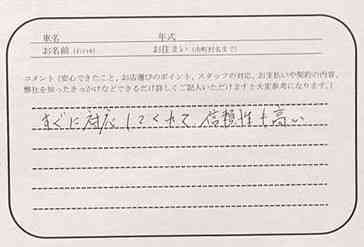 車名 年式
お名前（イニシャル） お住まい（市町村名まで）
コメント（安心できたこと、お店選びのポイント、スタッフの対応、お支払いや契約の内容、
弊社を知ったきっかけなどできるだけ詳しくご記入いただけますと大変参考になります。）
すぐに対応してくれて信頼性も高い